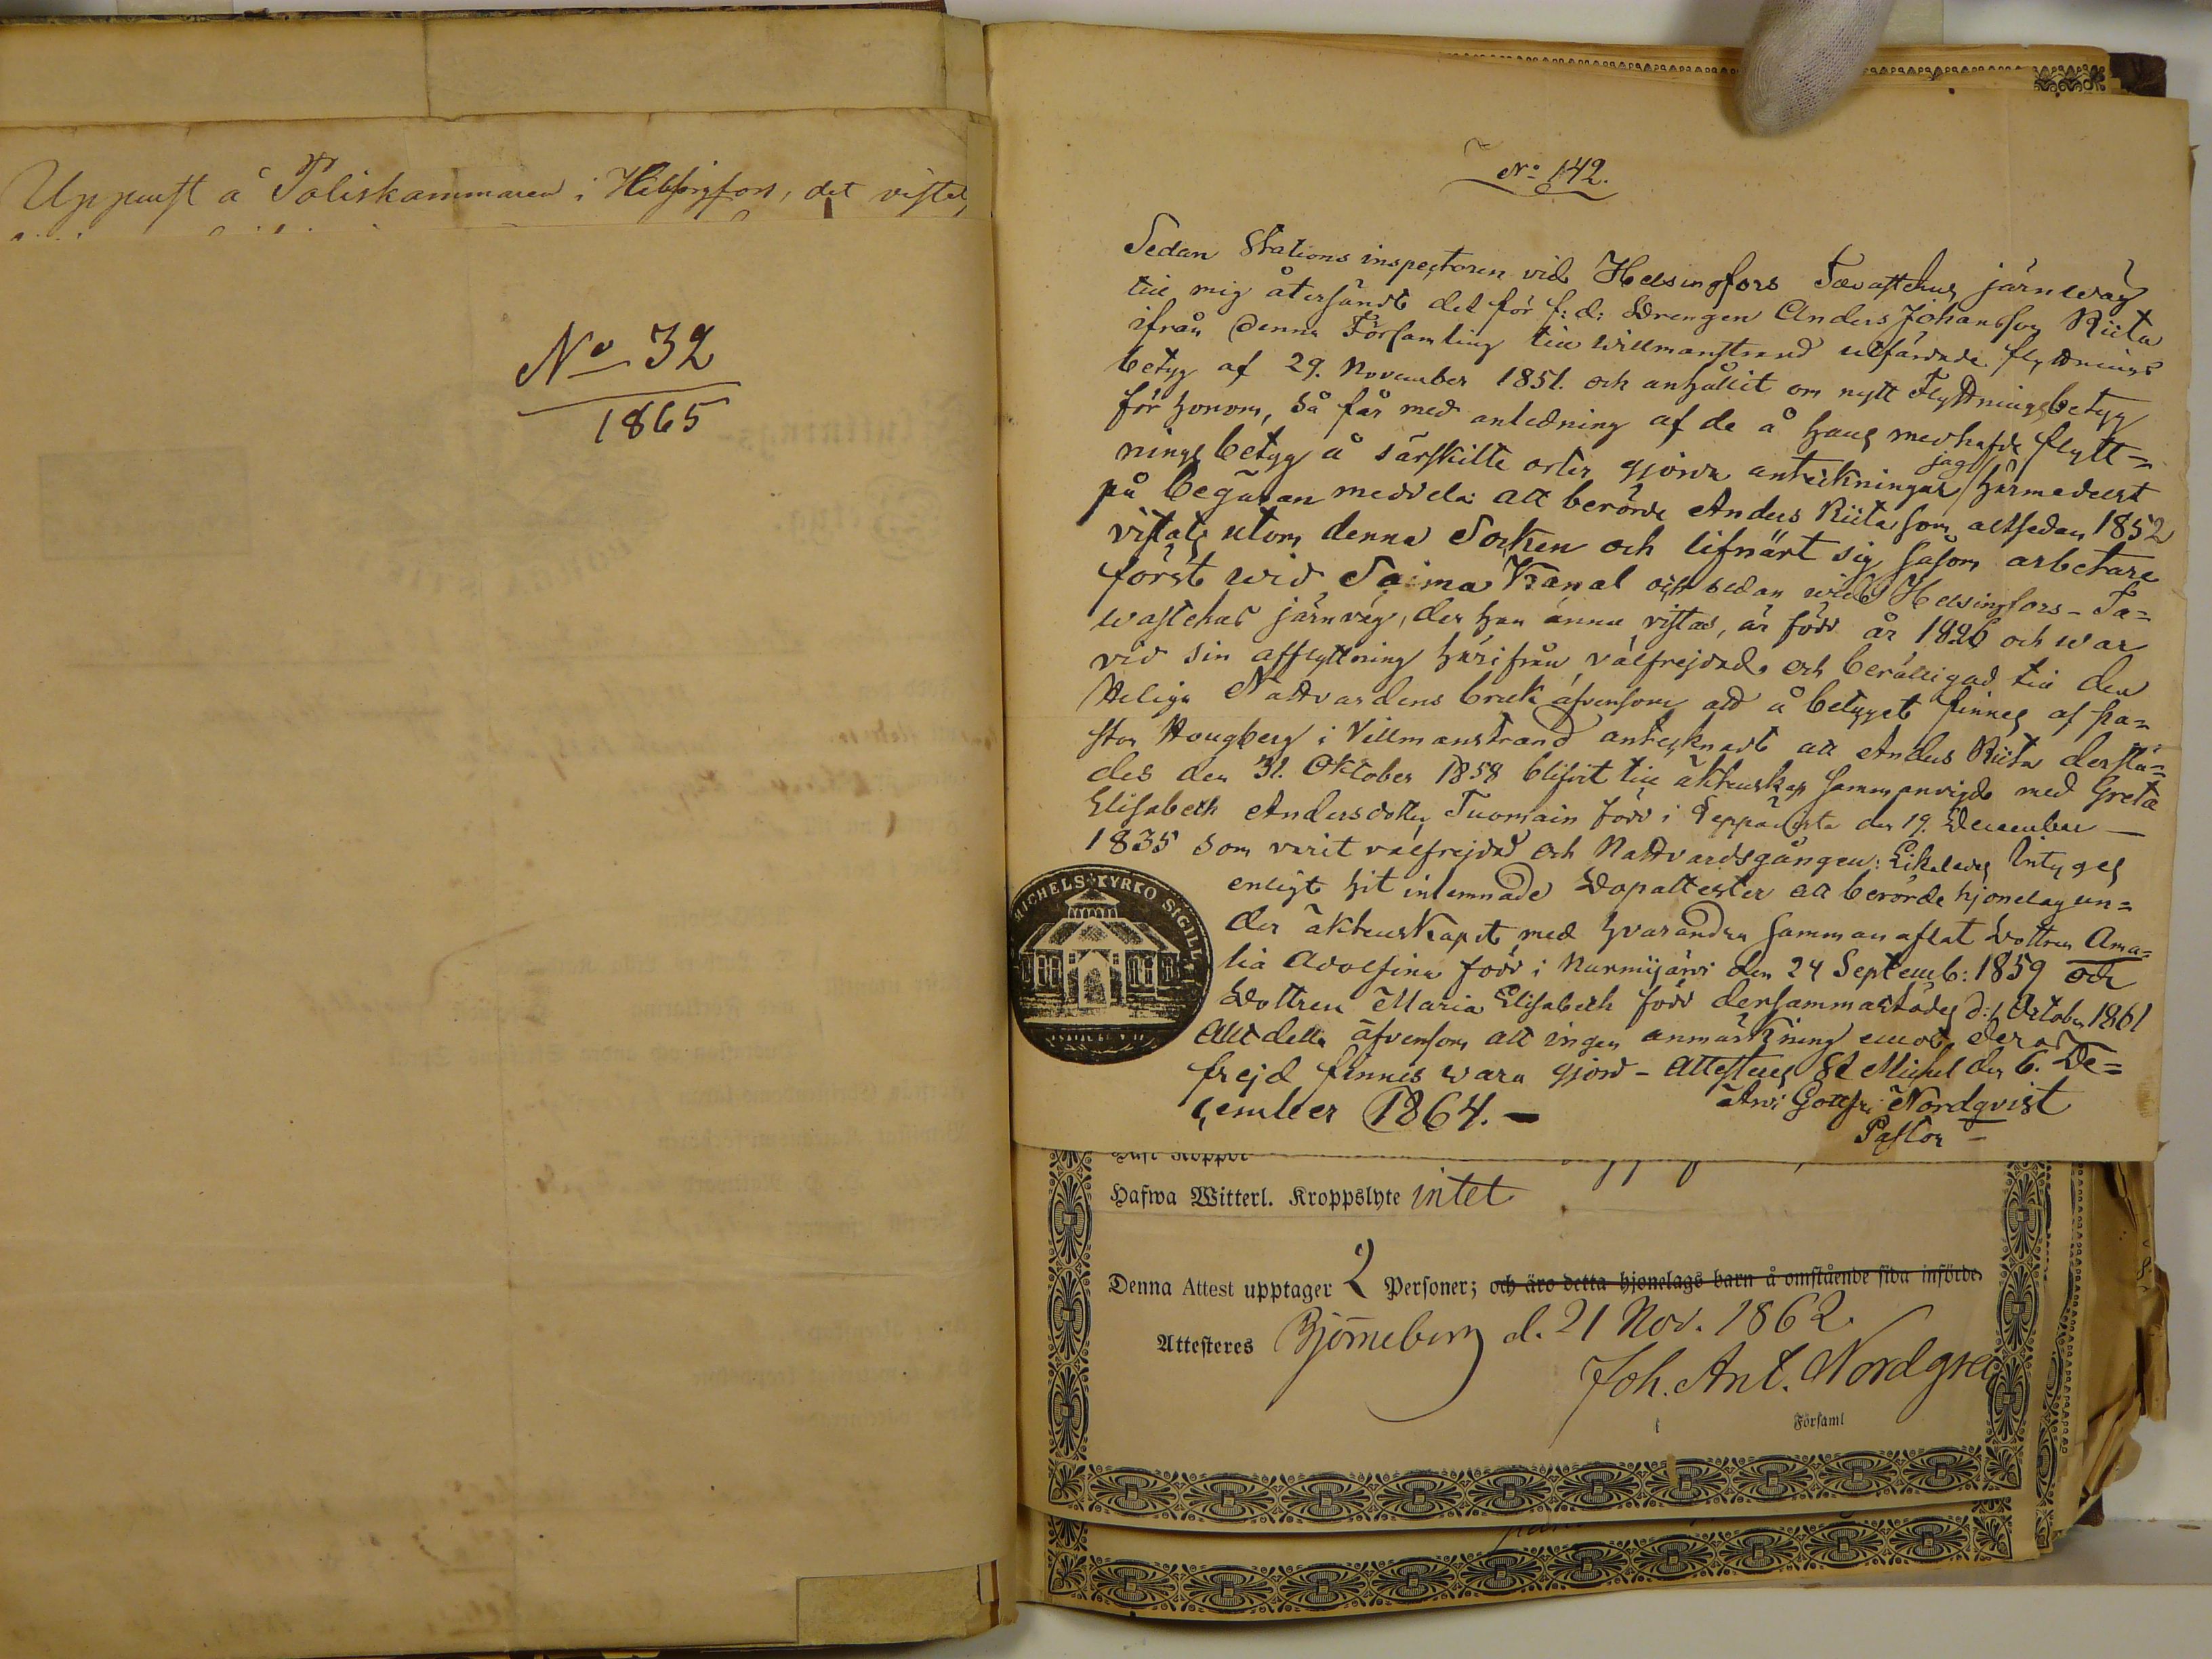 Uppvist å Poliskammaren i Helsingfors, det vistel
No 32
1865
No 142.
Sedan Stations inspectoren vid Helsingfors Tavastehus järnwäg
till mig återsändt det för f: d: Drengen Anders Johansson Riita
ifrån denna Församling till Willmanstrand utfärdade flyttnings
betyg af 29. November 1851. och anhållit om nytt Flyttningsbetyg
för honom, så får med anledning af de å hans medhafde flytt=
nings betyg å särskilte orter gjorda anteckningar jag härmedelst
på begäran meddela: att berörde Anders Riita som altsedan 1852
vistats utom denna Socken och lifnärt sig såsom arbetare
först wid Saima Kanal och sedan wid Helsingfors-Ta=
wastehus järnväg, der han ännu vistas, är född år 1826 och war
vid sin afflyttning härifrån välfrejdad och berättigad till den
Heliga Nattvardens bruk äfvensom att å betyget finnes af Pa=
stor Hougberg i Villmanstrand antecknadt att Anders Riita derstä=
des den 31. Oktober 1858 blifvit till äktenskap sammanvigd med Greta
Elisabeth Andersdotter Tuomain född i Leppävirta den 19. December
1835 som varit välfrejdad och Nattvardsgången: Likaledes Intyges
enligt hit inlemnade Dopattester att berörde hjonelag un=
der äktenskapet med hvarandra sammanaflat Dottren Ama=
lia Adolfina född i Nurmijärvi den 24 Septemb: 1859 och
Dottren Maria Elisabeth född dersammastädes d: 1 October 1861
Allt detta äfvensom att ingen anmärkning emot deras
frejd finnes wara gjord - Attesteras St Michel den 6. De=
cember 1864.-
Arvi Gottfr: Nordqvist
Pastor
MICHELS KYRKO SIGILL
Haft Koppor
Hafwa Witterl. Kroppslyte intet
Denna Attest upptager 2 Personer; och äro detta hjonelags barn å omstående sida införde.
Attesteres Björneborg d. 21 Nov. 1862.
Joh. Ant. Nordgren
Församl